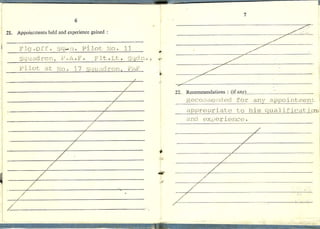 6
21. Appointments held and experience gained :
Flg.Off. Sqdn. Pilot No. 11
Squadron, P.A.F. Flt.Lt. Sqdn.,
Pilot at No. 17 Squadron, PAF
7
22. Recommendations : (if any)
Recommended for any appointment
appropriate to his qualification
and experience.